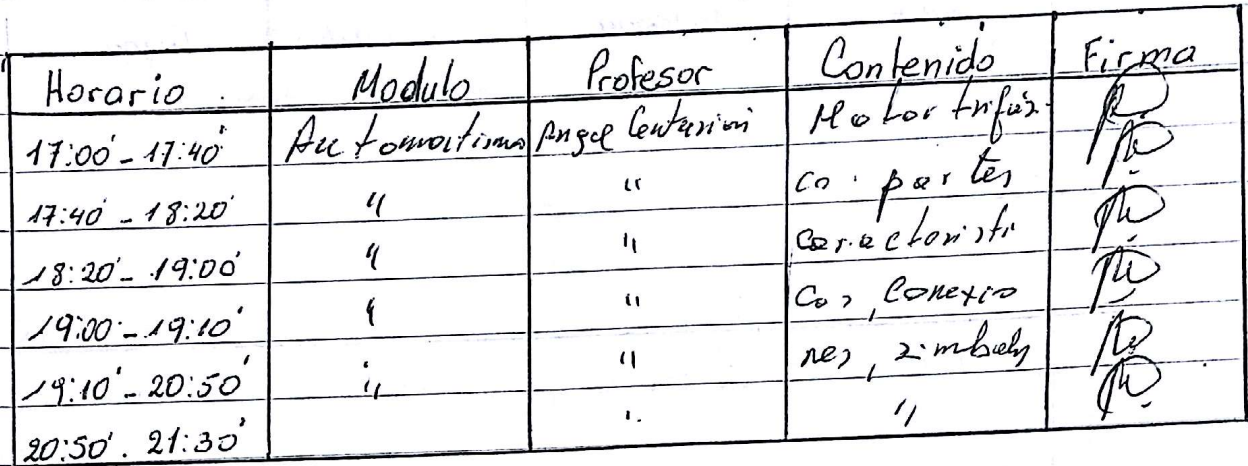 Horario Modulo Profesor Contenido Firma
17:00' - 17:40' Automatismo Angel Centurion Motor trifás.
17:40' - 18:20' " " co. partes
18:20' - 19:00' " " caracteristi
19:00' - 19:10' " " cos, Conexio
19:10' - 20:50' " " nes, simbolos
20:50' . 21:30' " "